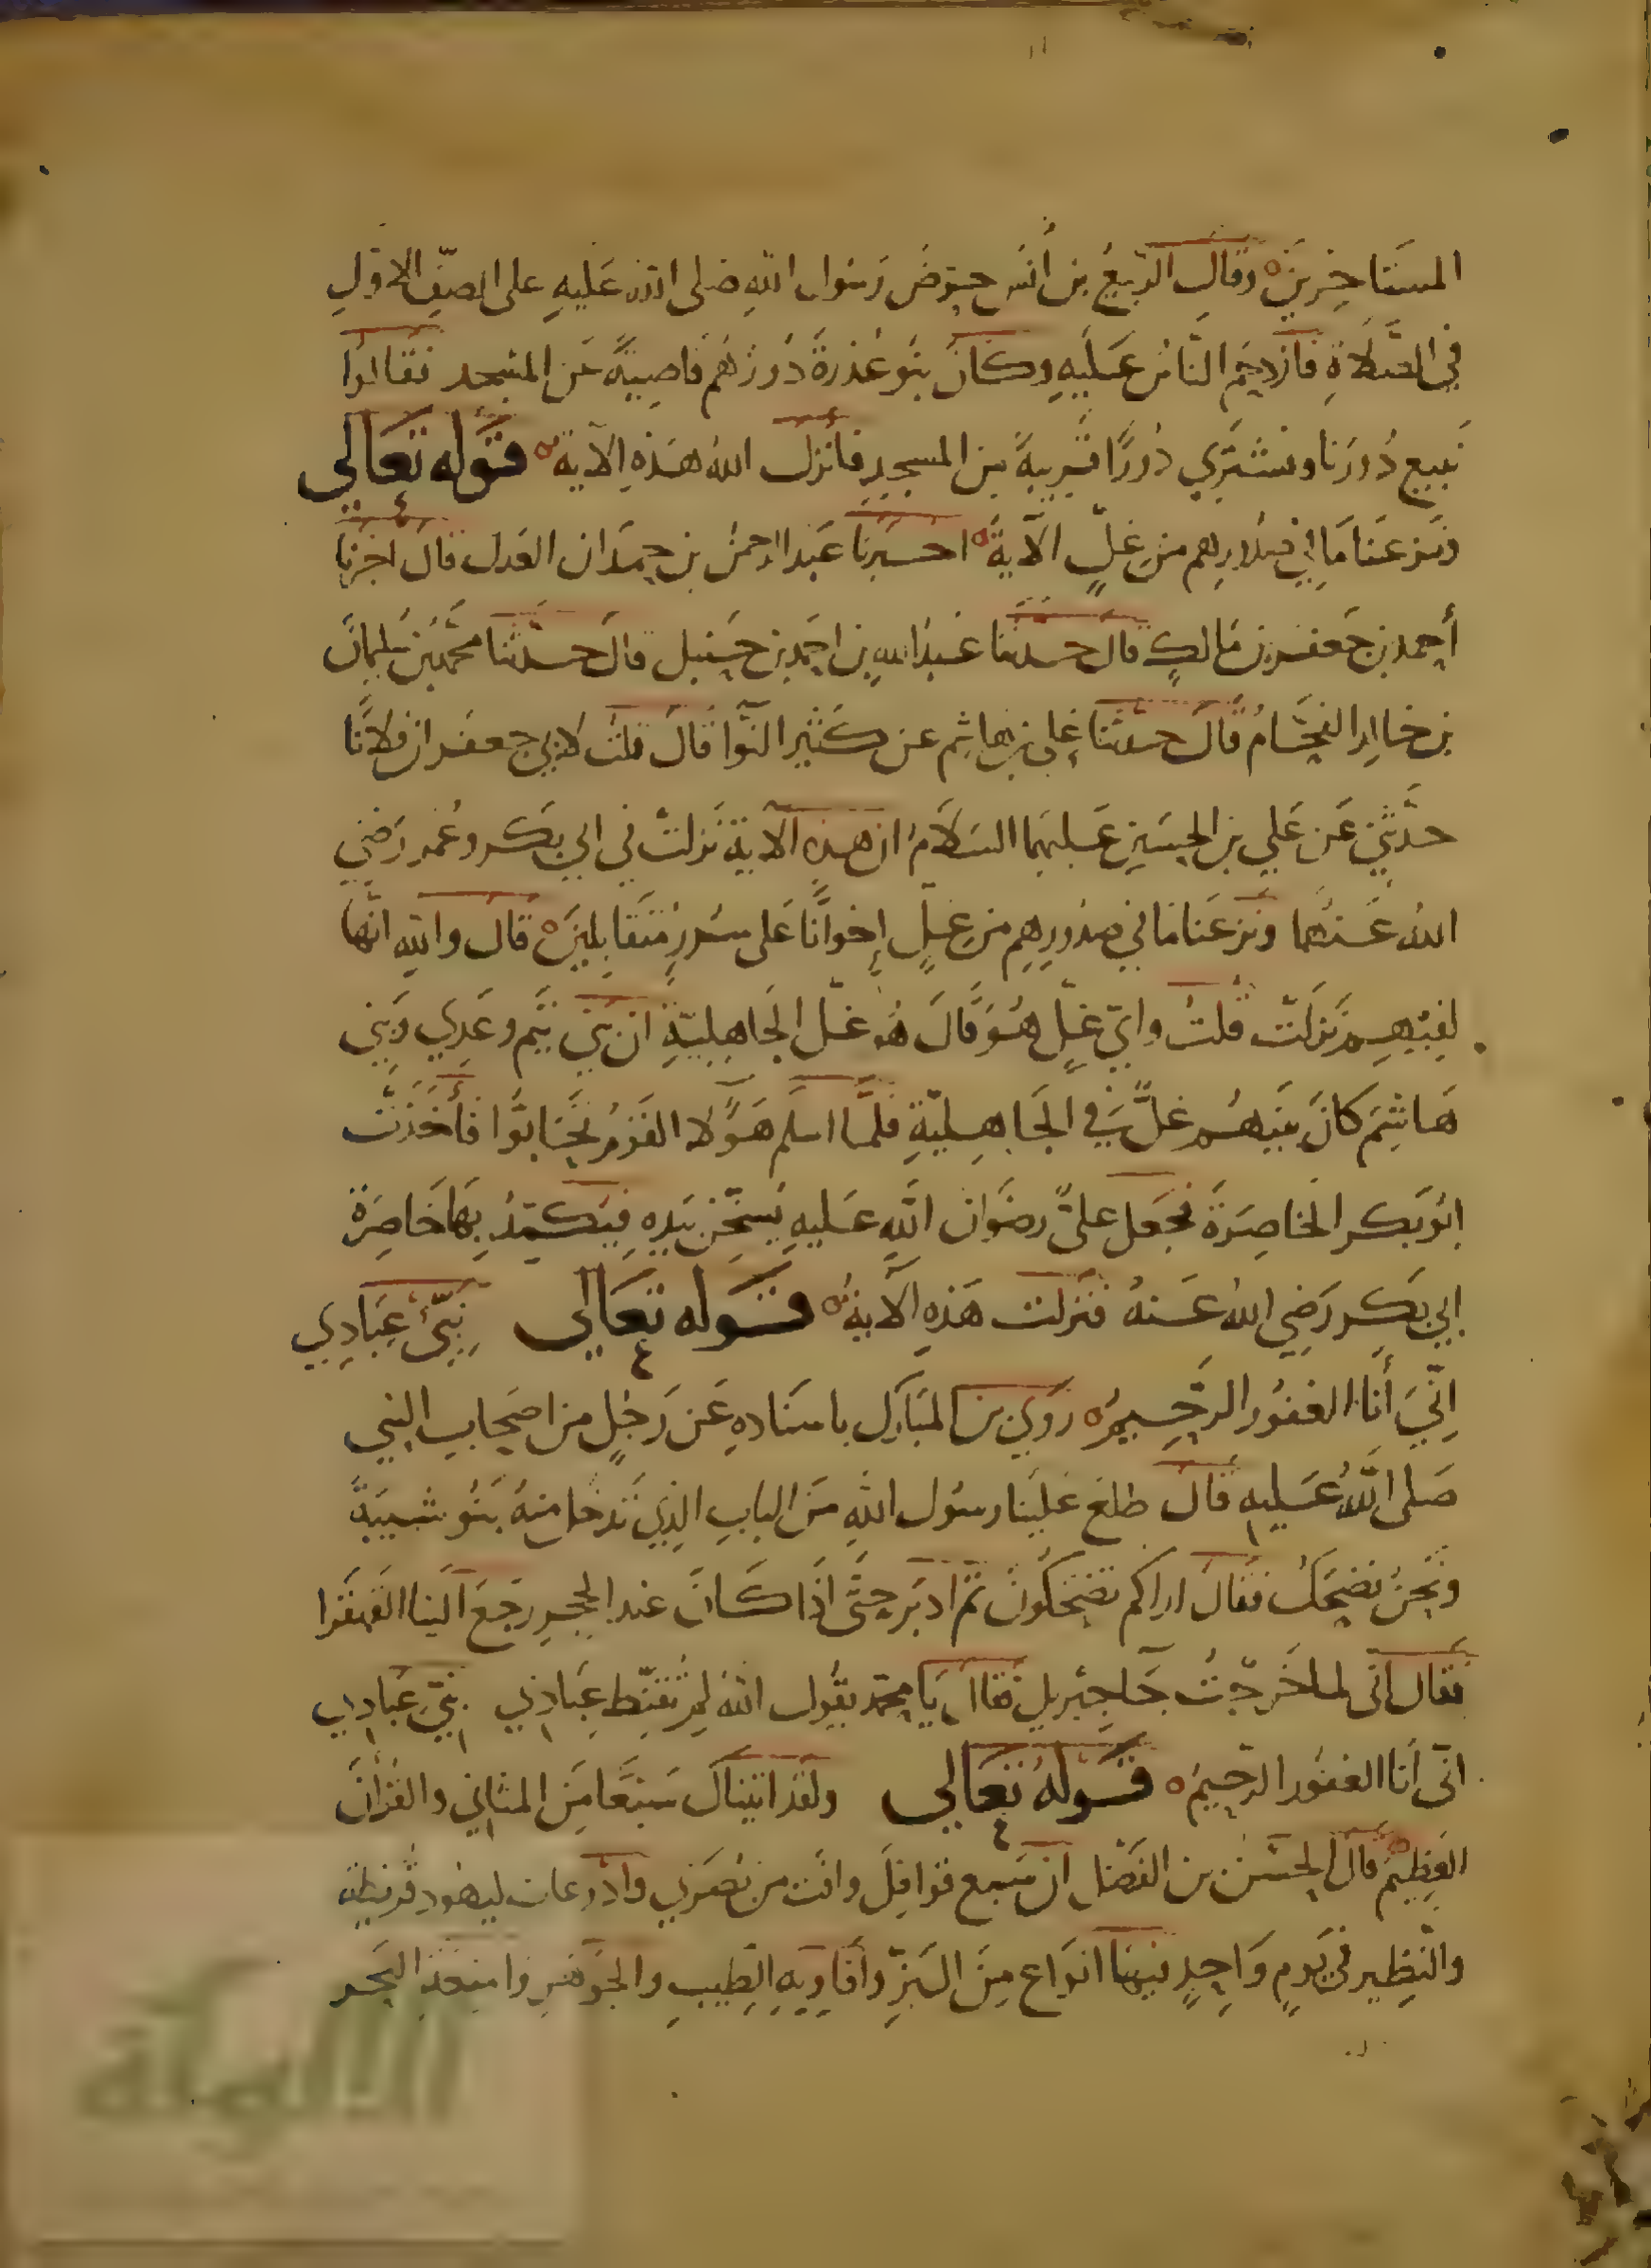 المستاخرين وقال الربيع بن أنس حرض رسول الله صلى الله عليه على الصف الاول
في الصلاة فازدحم الناس عليه وكان بنو عذرة دورهم قاصية عن المسجد فقالوا
نبيع دورنا ونشتري دورا قريبة من المسجد فانزل الله هذه الآية قوله تعالى
ونزعنا ما في صدورهم من غل الآية اخبرنا عبد الرحمن بن حمدان العدل قال اخبرنا
أحمد بن جعفر بن مالك قال حدثنا عبد الله بن احمد بن حنبل قال حدثنا محمد بن سليمان
بن خالد الفحام قال حدثنا علي بن هاشم عن كثير النوا قال قلت لابي جعفر ان فلانا
حدثني عن علي بن الحسين عليهما السلام ان هذه الآية نزلت في ابي بكر وعمر رضي
الله عنهما ونزعنا ما في صدورهم من غل إخوانا على سرر متقابلين قال والله انها
لفيهم نزلت قلت واي غل هو قال هو غل الجاهلية ان بني تيم وعدي وبني
هاشم كان بينهم غل في الجاهلية فلما اسلم هؤلا القوم تحابوا فأخذت
ابو بكر الخاصرة فجعل علي رضوان الله عليه يسخن يده فيكمد بها خاصرة
ابي بكر رضي الله عنه فنزلت هذه الآية قوله تعالى نبئ عبادي
اني أنا الغفور الرحيم روى بن المبارك باسناده عن رجل من اصحاب النبي
صلى الله عليه قال طلع علينا رسول الله من الباب الذي تدخل منه بنو شيبة
ونحن نضحك فقال اراكم تضحكون ثم ادبر حتى اذا كان عند الحجر رجع الينا القهقرا
فقال انى لما خرجت جا جبريل فقال يا محمد يقول الله لم تقنط عبادي نبئ عبادي
انى أنا الغفور الرحيم قوله تعالى ولقد اتيناك سبعا من المثاني والقرآن
العظيم قال الحسن بن الفضل ان سبع قوافل وافت من بصرى واذرعات ليهود قريظة
والنظير في يوم واحد فيها انواع من البز وأفاويه الطيب والجوهر وامتعة البحر